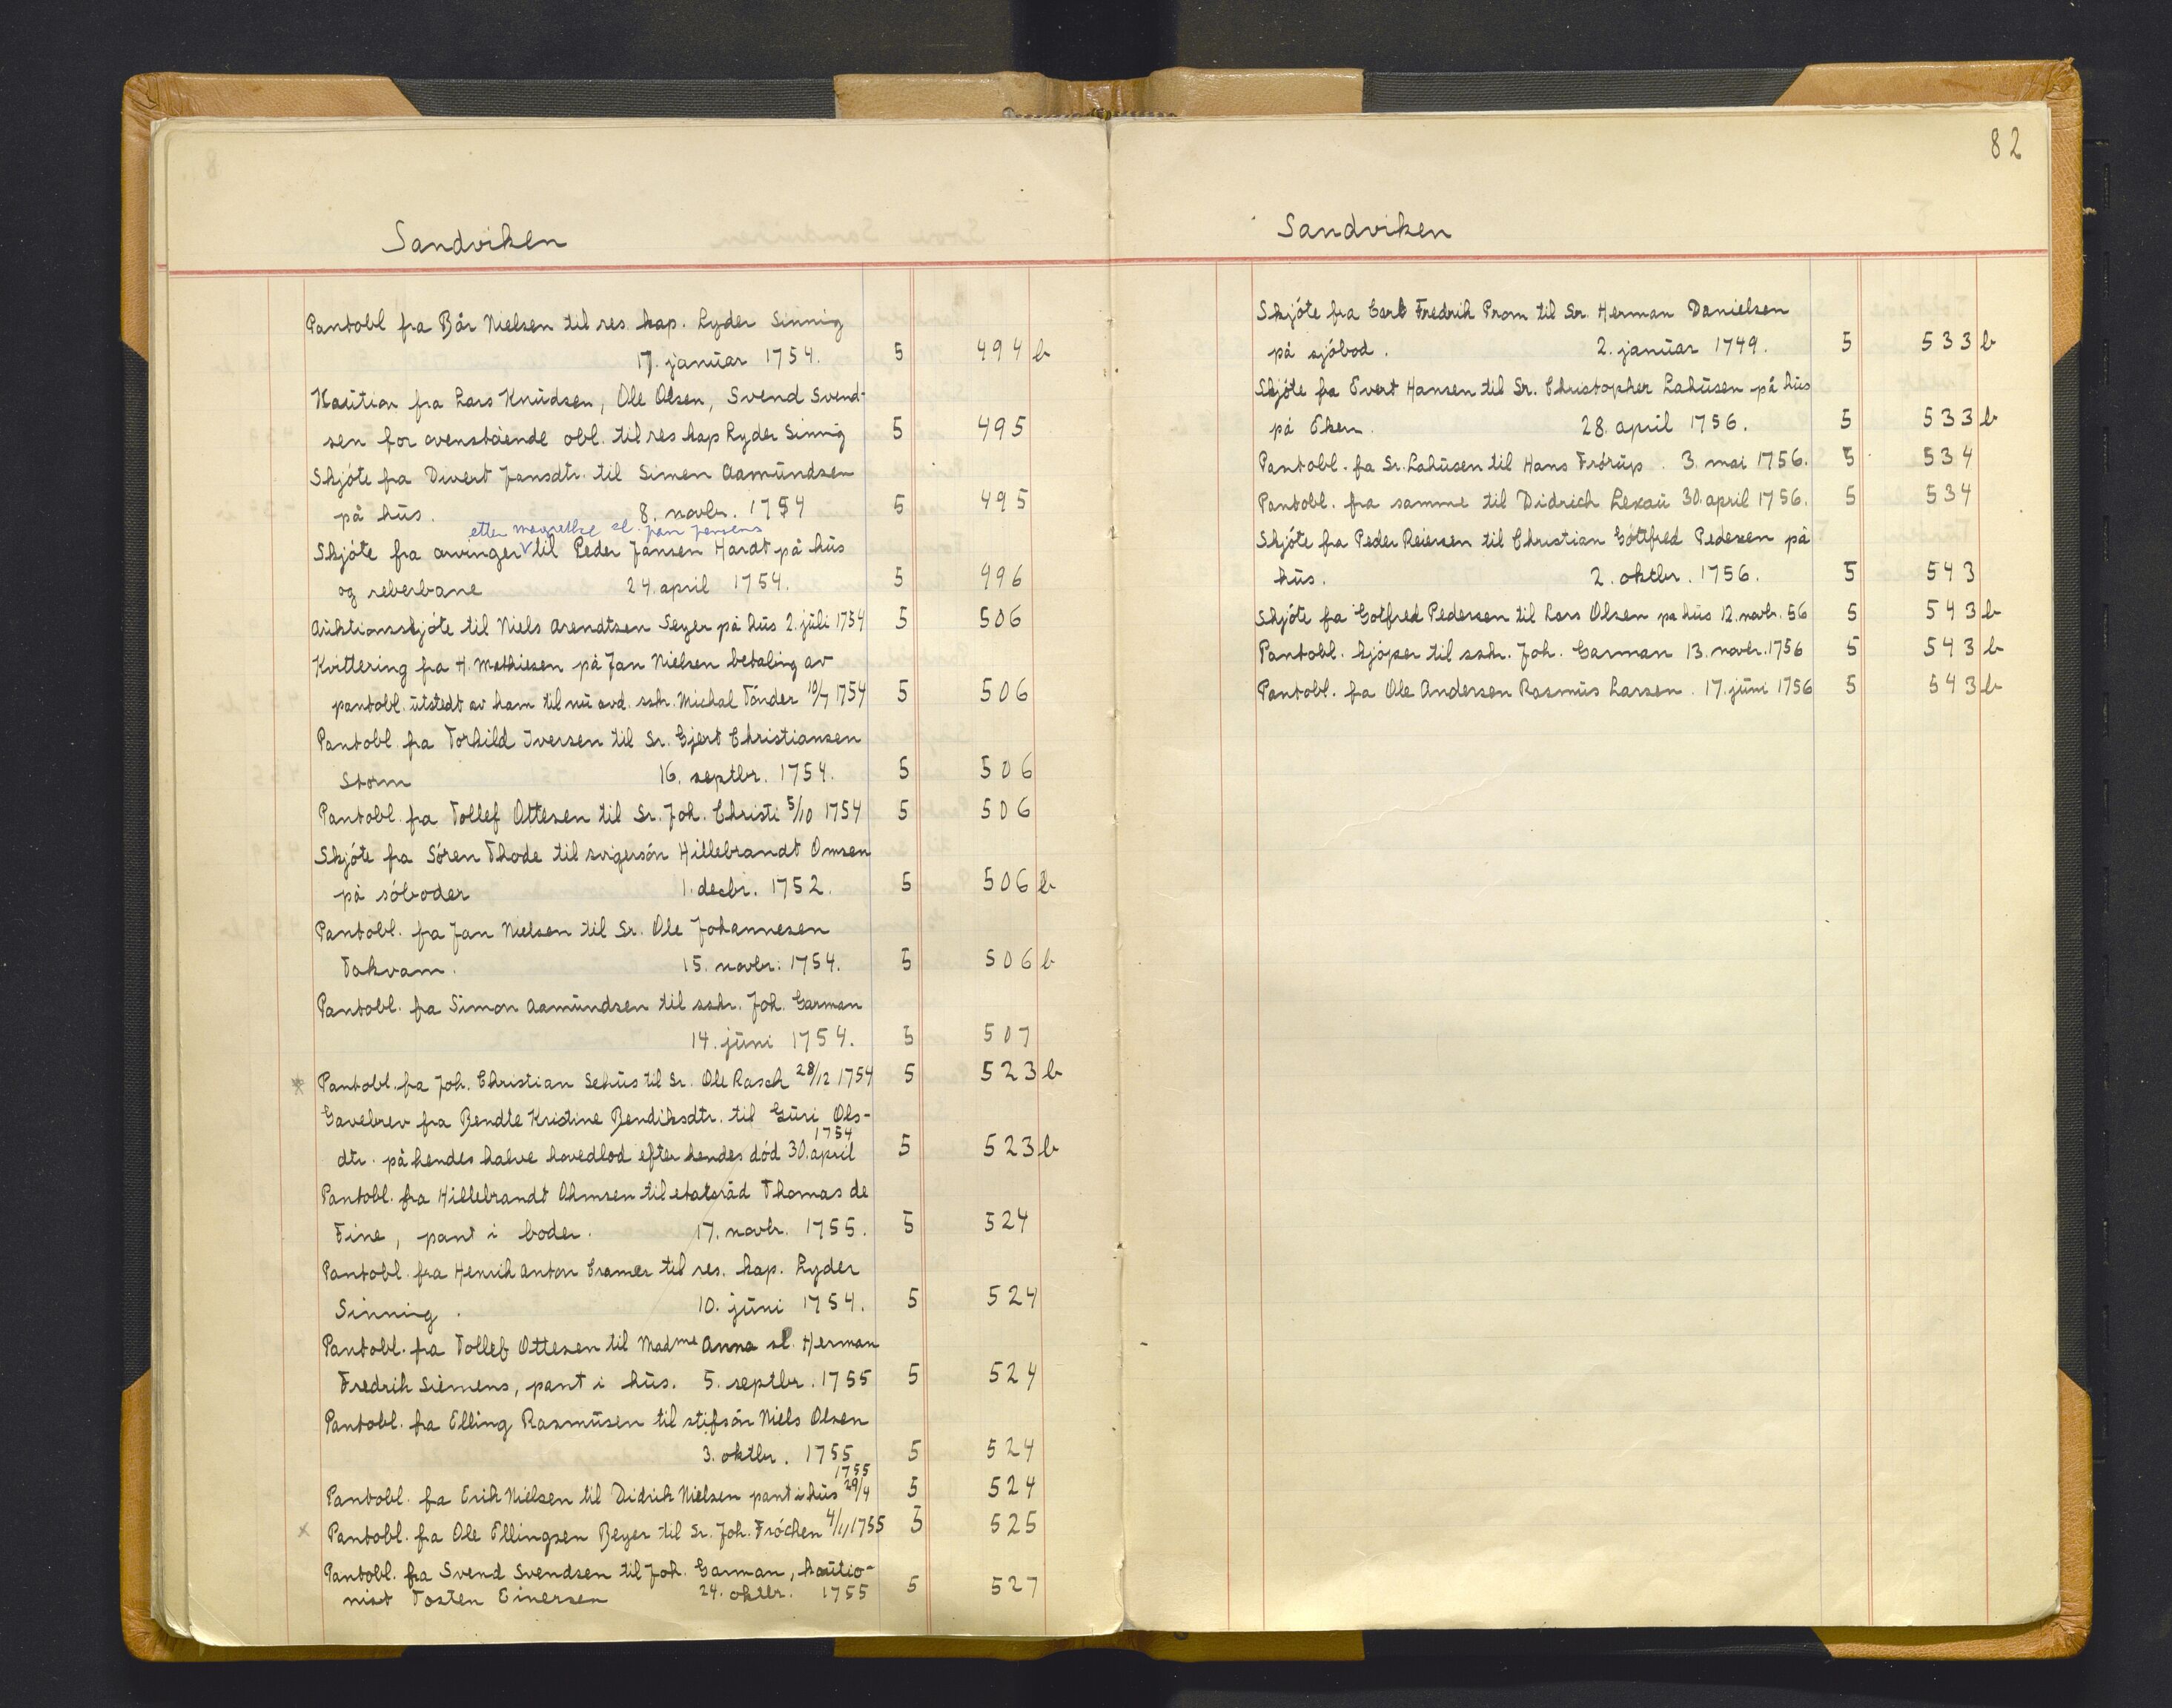 Sandviken
Pantobl fra Bår Nielsen til res. kap. Lyder Sinnig
17. januar 1754. 5 494 b
Kaution fra Lars Knudsen, Ole Olsen, Svend Svend-
sen for ovenstående obl. til res kap Lyder Sinnig 5 495
Skjöte fra Divert Jansdtr. til Simen Aamundsen
på hus. 8. novbr. 1754 5 495
etter Magrethe sl. Jan Jensens
Skjöte fra arvinger til Peder Jansen Hardt på hus
og reberbane 24. april 1754. 5 496
Auktionsskjöte til Niels Arendtsen Seyer på hus 2. juli 1754 5 506
Kvittering fra H. Mathiesen på Jan Nielsen betaling av
pantobl. utstedt av ham til nu avd. sskr. Michal Tönder 19/7 1754 5 506
Pantobl. fra Torkild Iversen til Sr. Gjert Christiansen
Storm 16. septbr. 1754. 5 506
Pantobl. fra Tollef Ottesen til Sr. Joh. Christi 5/10 1754 5 506
Skjöte fra Sören Thode til svigersön Hillebrandt Omsen
på söboder 1. decbr. 1752. 5 506 b
Pantobl. fra Jan Nielsen til Sr. Ole Johannesen
Tokvam. 15. novbr. 1754. 5 506 b
Pantobl. fra Simon Aamundsen til sskr. Joh. Garman
14. juni 1754. 5 507
x Pantobl. fra Joh. Christian Sehus til Sr. Ole Rasch 28/12 1754 5 523 b
Gavebrev fra Bendte Kristine Bendiksdtr. til Guri Ols-
1754
dtr. på hendes halve hovedlod efter hendes död 30. april 5 523 b
Pantobl. fra Hillebrandt Ohmsen til etatsråd Thomas de
Fine, pant i boder. 17. novbr. 1755. 5 524
Pantobl. fra Henrik Anton Cramer til res. kap. Lyder
Sinning. 10. juni 1754. 5 524
Pantobl. fra Tollef Ottesen til Madme Anna sl. Herman
Fredrik Siemens, pant i hus. 5. septbr. 1755 5 524
Pantobl. fra Elling Rasmusen til stifsön Niels Olsen
3. oktbr. 1755 5 524
1755
Pantobl. fra Erik Nielsen til Didrik Nielsen pant i hus 29/4 5 524
x Pantobl. fra Ole Ellingsen Beyer til Sr. Joh. Fröchen 4/11 1755 5 525
Pantobl. fra Svend Svendsen til Joh. Garman, kautio-
nist Tosten Einersen 24. oktbr. 1755 5 527
82
Sandviken
Skjöte fra Gert Fredrik Prom til Sr. Herman Danielsen
på sjöbod. 2. januar 1749. 5 533 b
Skjöte fra Evert Hansen til Sr. Christopher Lahusen på hus
på Eken. 28. april 1756. 5 533 b
Pantobl. fra Sr. Lahusen til Hans Frörup. 3. mai 1756. 5 534
Pantobl. fra samme til Didrich Lexau 30. april 1756. 5 534
Skjöte fra Peder Reiersen til Christian Gottfred Pedersen på
hus. 2. oktbr. 1756. 5 543
Skjöte fra Gotfred Pedersen til Lars Olsen pa hus 12. novbr. 56 5 543 b
Pantobl. kjöper til sskr. Joh. Garman 13. novbr. 1756 5 543 b
Pantobl. fra Ole Andersen Rasmus Larsen. 17. juni 1756 5 543 b